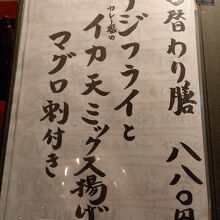 日替わり膳 八八〇円
アジフライと
カレー塩の
イカ天ミックス揚げ
マグロ刺付き